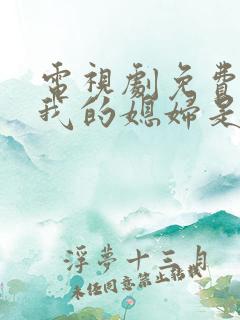 電視劇免費
我的媳婦是
浮夢十三月
未经同意禁止转载